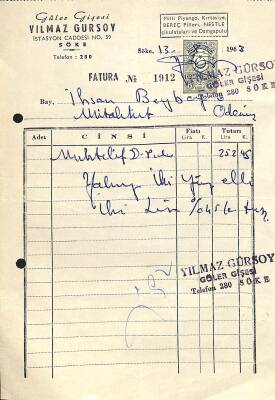 Güler Gişesi
YILMAZ GÜRSOY
İSTASYON CADDESİ NO. 59
SÖKE
Telefon : 280
Milli Piyango, Kırtasiye,
BEREÇ Pilleri, NESTLE
Çikulataları ve Dangapulo
Söke, 13- 1963
FATURA № 1912
YILMAZ GÜRSOY
GÜLER GİŞESİ
Telefon 280 SÖKE
Bay, İhsan
Ödemiş
Adet CİNSİ Fiatı Tutarı
Lira K. Lira K.
Muhtelif 252 45
Yalnız İki Yüz elli
İki Lira 45
YILMAZ GÜRSOY
GÜLER GİŞESİ
Telefon 280 SÖKE